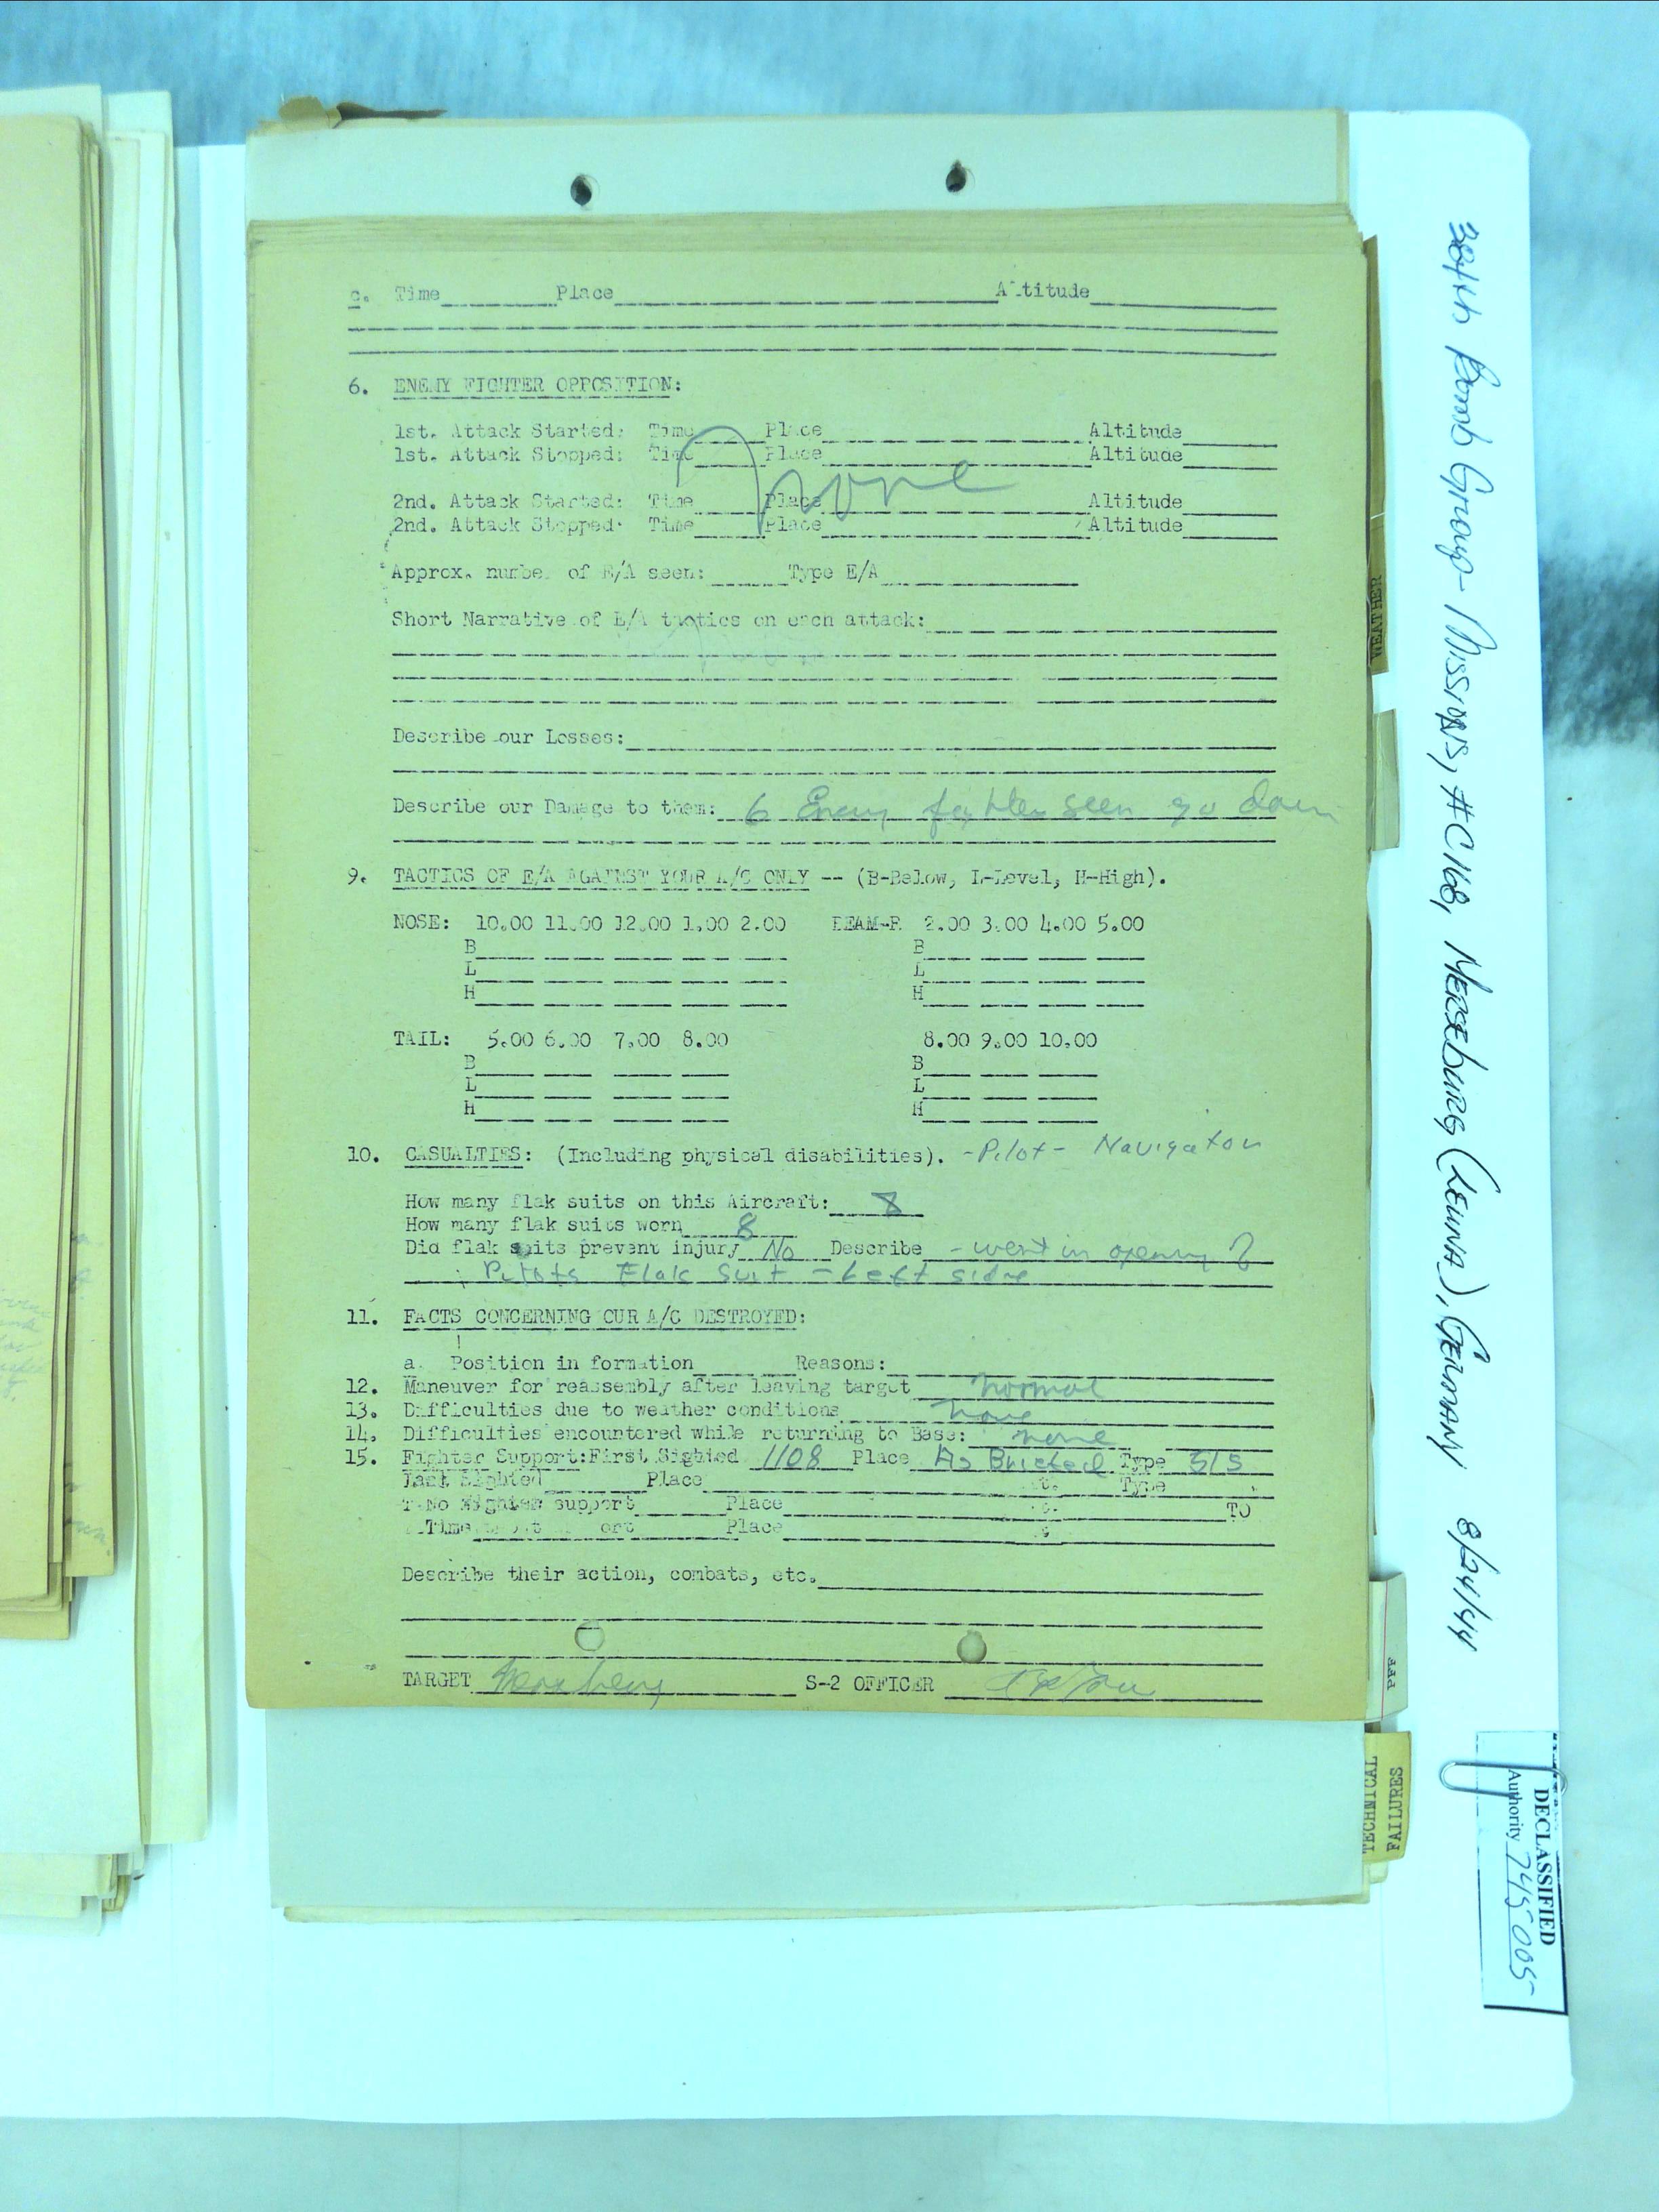 c. Time Place Altitude
6. ENEMY FIGHTER OPPOSITION:
1st. Attack Started: Time Place Altitude
1st. Attack Stopped: Time Place Altitude
None
2nd. Attack Started: Time Place Altitude
2nd. Attack Stopped: Time Place Altitude
Approx. number of E/A seen: Type E/A
Short Narrative of E/A tactics on each attack:
Describe our Losses:
Describe our Damage to them: 6 Enemy fighters seen go down
9. TACTICS OF E/A AGAINST YOUR A/C ONLY -- (B-Below, L-Level, H-High).
NOSE: 10.00 11.00 12.00 1.00 2.00 BEAM-R 2.00 3.00 4.00 5.00
B B
L L
H H
TAIL: 5.00 6.00 7.00 8.00 8.00 9.00 10.00
B B
L L
H H
10. CASUALTIES: (Including physical disabilities). - Pilot - Navigator
How many flak suits on this Aircraft: 8
How many flak suits worn 8
Did flak suits prevent injury No Describe - went in opening of
Pilots Flak Suit - Left side
11. FACTS CONCERNING OUR A/C DESTROYED:
a. Position in formation Reasons:
12. Maneuver for reassembly after leaving target normal
13. Difficulties due to weather conditions none
14. Difficulties encountered while returning to Base: none
15. Fighter Support: First Sighted 1108 Place As Briefed Type 51s
Last Sighted Place Type
No Fighter support Place TO
Time Place
Describe their action, combats, etc.
TARGET Merseburg S-2 OFFICER
384th Bomb Group - Missions, #C168, MERSEBURG (LEUNA), GERMANY 8/24/44
WEATHER
PFF
TECHNICAL
FAILURES
DECLASSIFIED
Authority 745005